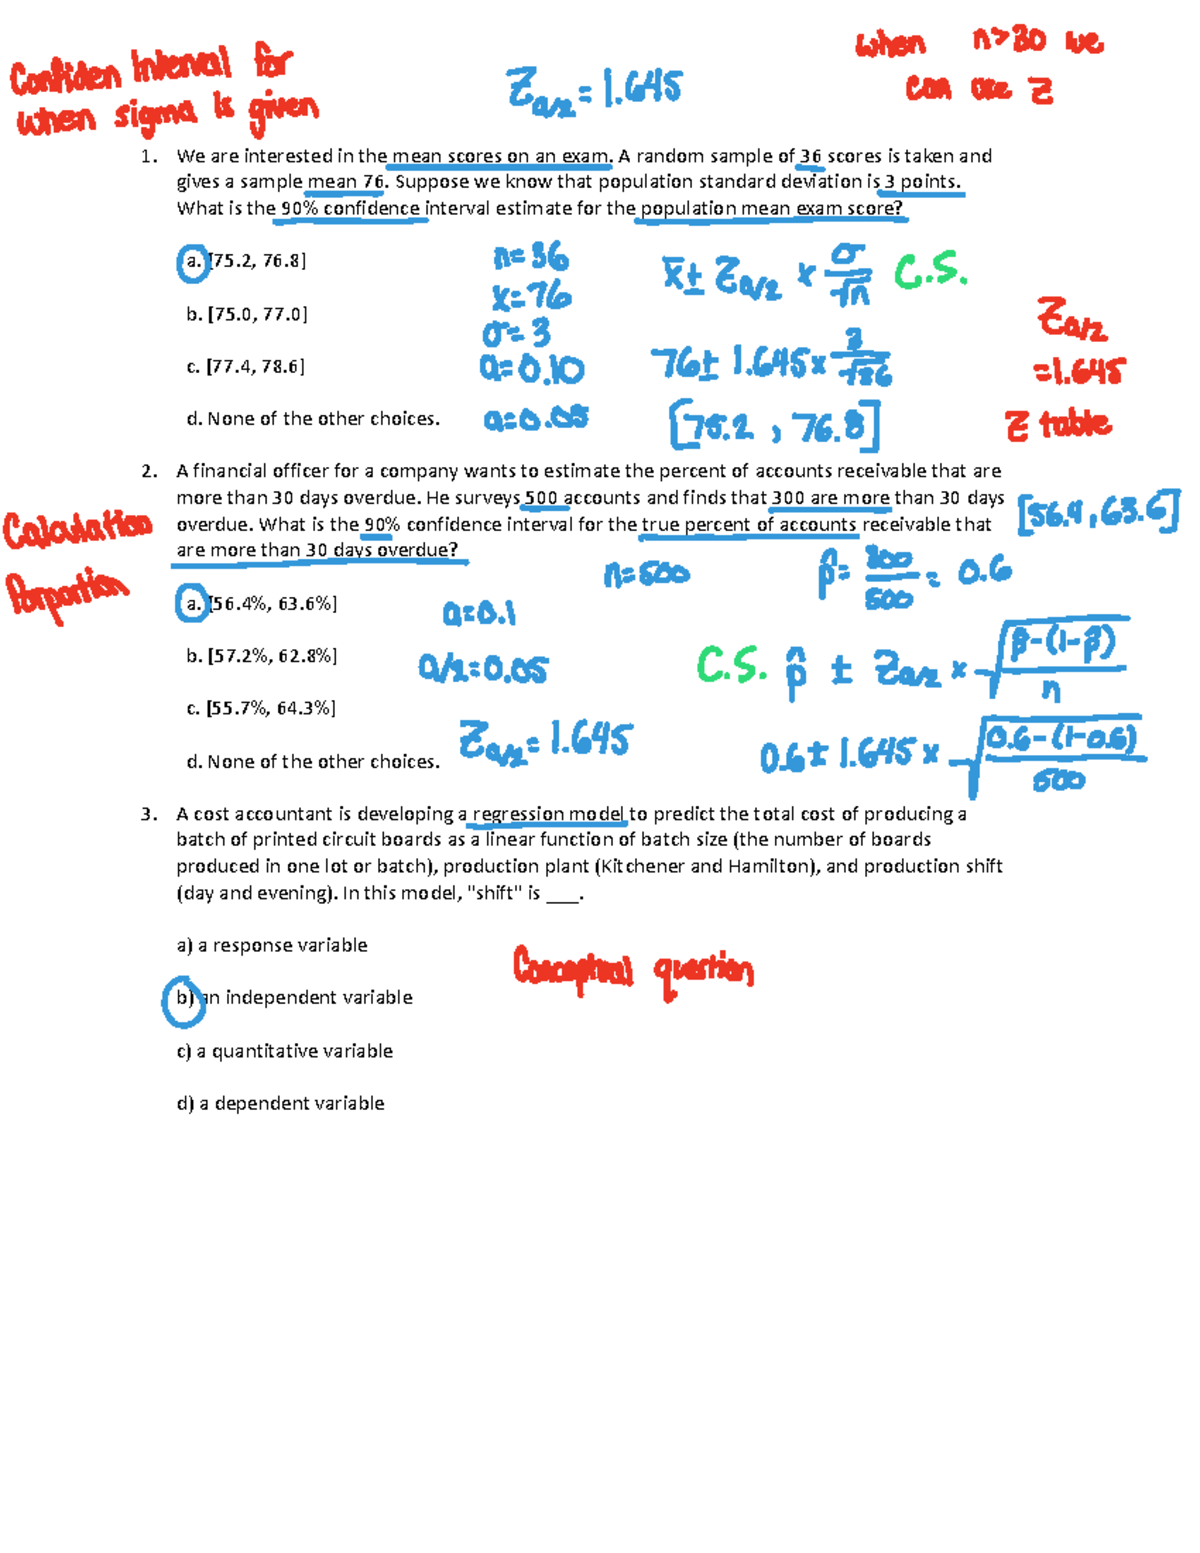 Confiden Interval for
when sigma is given
Za/2 = 1.645
when n>30 we
can use Z
1. We are interested in the mean scores on an exam. A random sample of 36 scores is taken and
gives a sample mean 76. Suppose we know that population standard deviation is 3 points.
What is the 90% confidence interval estimate for the population mean exam score?
a. [75.2, 76.8]
b. [75.0, 77.0]
c. [77.4, 78.6]
d. None of the other choices.
n=36
x=76
σ=3
a=0.10
a=0.05
x̄± Za/2 × σ/√n C.S.
76± 1.645× 3/√36
[75.2 , 76.8]
Za/2
=1.645
Z table
2. A financial officer for a company wants to estimate the percent of accounts receivable that are
more than 30 days overdue. He surveys 500 accounts and finds that 300 are more than 30 days
overdue. What is the 90% confidence interval for the true percent of accounts receivable that
are more than 30 days overdue?
Calculation
Porportion
[56.4, 63.6]
n=500
p̂= 300/500 = 0.6
a. [56.4%, 63.6%]
b. [57.2%, 62.8%]
c. [55.7%, 64.3%]
d. None of the other choices.
a=0.1
a/2=0.05
Za/2=1.645
C.S. p̂ ± Za/2 × √p̂-(1-p̂)/n
0.6± 1.645 × √0.6-(1-0.6)/500
3. A cost accountant is developing a regression model to predict the total cost of producing a
batch of printed circuit boards as a linear function of batch size (the number of boards
produced in one lot or batch), production plant (Kitchener and Hamilton), and production shift
(day and evening). In this model, "shift" is ___.
a) a response variable
b) an independent variable
c) a quantitative variable
d) a dependent variable
Conceptual question